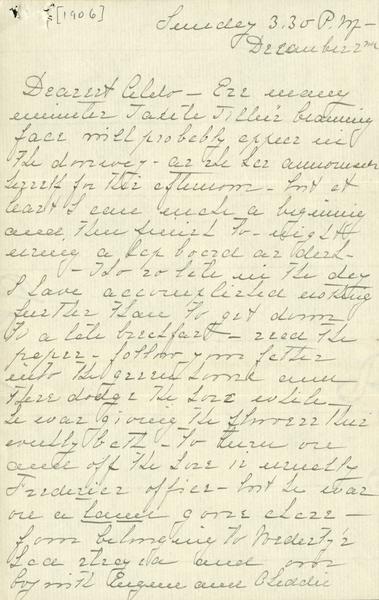 [1906]
Sunday 3.30 P.M. -
December 2nd
Dearest Aldo - Ere many
minutes Tante Tillie's beaming
face will probably appear in
the doorway - as she has announced
herself for this afternoon - but at
least I can make a beginning
and then finish to-night
using a lap board as desk -
- Tho so late in the day
I have accomplished nothing
further than to get down
to a late breakfast - read the
paper - follow your father
into the green house and
there dodge the hose while
he was giving the flowers their
weekly bath - To turn on
and off the hose is usually
Frederics office - but he was
on a hound gone chase -
from belonging to
had strayed and our
boy with Eugene and